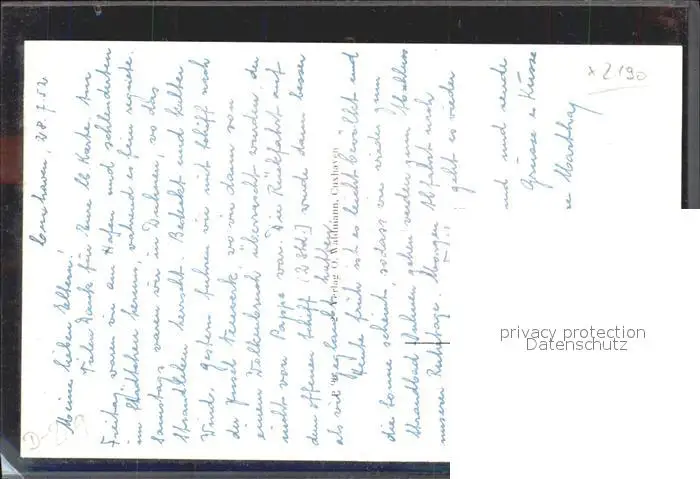 Cuxhaven, 28.7.52
Meine lieben Eltern!
Vielen Dank für Eure lb Karte. Am
Freitag waren wir am Hafen und schlenderten
im Städtchen herum, während es fein regnete.
Samstags waren wir in Duhnen, wo das
Strandleben herrscht. Bedeckt und kalter
Wind. Gestern fuhren wir mit Schiff nach
der Insel Neuwerk wo wir dann von
einem Wolkenbruch überrascht wurden, der
nicht von Pappe war. Die Rückfahrt auf
dem offenen Schiff (2 Std.) wurde dann besser
als wir geglaubt hatten.
Heute früh ist es leicht bewölkt und
die Sonne scheint, sodass wir wieder zum
Strandbad Duhnen gehen werden zum Abschluss
unserer Tage. Morgen Abfahrt nach
geht es wieder
und sende
Grüsse & Küsse
Verlag O. Waldmann, Cuxhaven
x 2190
privacy protection
Datenschutz